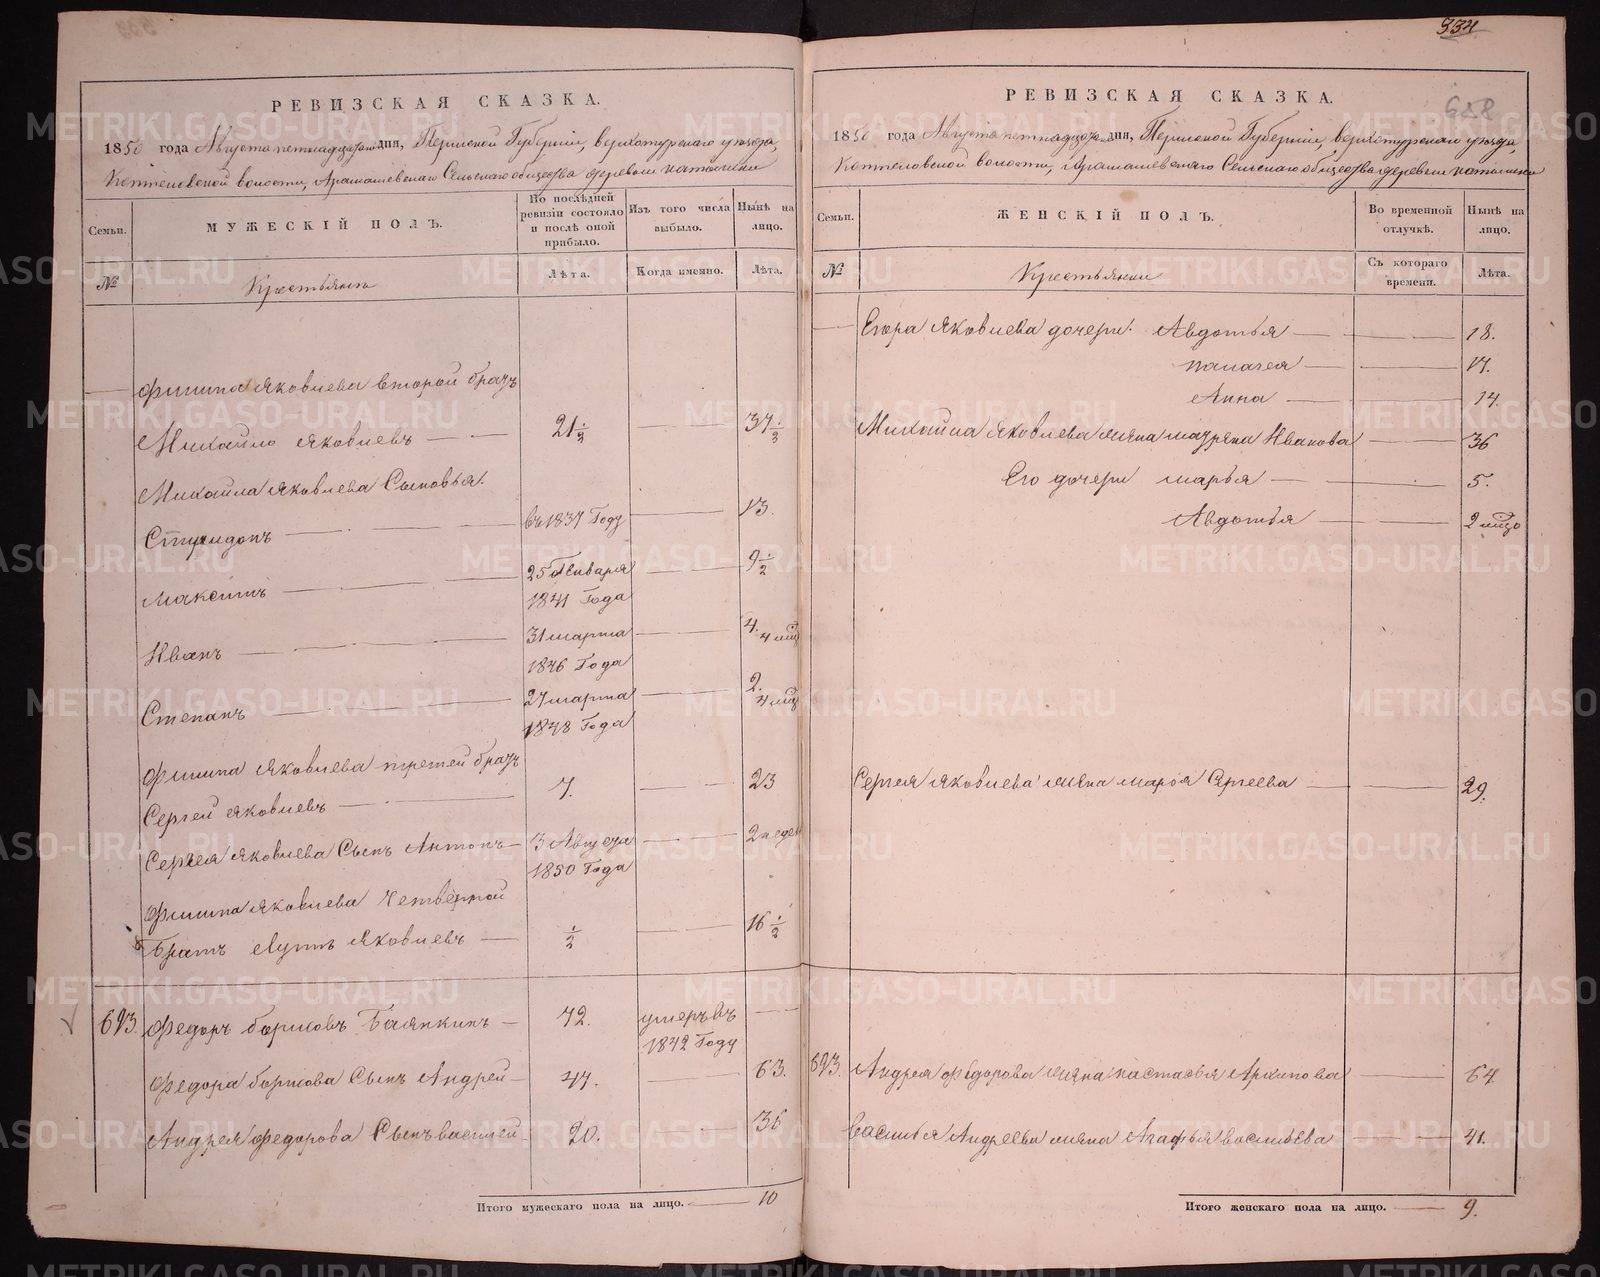 334
658
РЕВИЗСКАЯ СКАЗКА.
1850 года Августа пятнадцатого дня, Пермской Губернiи, верхотурскаго уѣзда,
волости, Арамашевскаго Сельскаго общества деревни
Семьи.
МУЖЕСКIЙ ПОЛЪ.
Во послѣдней ревизiи состояло и послѣ оной прибыло.
Изъ того числа выбыло.
Нынѣ на лицо.
№
Крестьяне
Лѣта.
Когда именно.
Лѣта.
Филипа Яковлева второй братъ
Михайло Яковлевъ 21½ 37½
Михайла Яковлева Сыновья.
Спиридонъ въ 1837 Году 13.
Максимъ 25 Января 1841 Года 9½
Иванъ 31 марта 1846 Года 4. 4 мѣц
Степанъ 27 марта 1848 Года 2. 4 мѣц
Филипа Яковлева третей братъ
Сергей Яковлевъ 7. 23
Сергея Яковлева Сынъ Антонъ 3 Августа 1850 Года 2 недел
Филипа Яковлева четвертой
Братъ Яковлевъ ½ 16½
693. Федоръ Борисовъ 72. умеръ въ 1842 Году
Федора Борисова Сынъ Андрей 47. 63.
Андрея Федорова Сынъ василей 20. 36
Итого мужескаго пола на лицо. 10
РЕВИЗСКАЯ СКАЗКА.
1850 года Августа пятнадцатого дня, Пермской Губернiи, верхотурскаго уѣзда,
волости, Арамашевскаго Сельскаго общества деревни
Семьи.
ЖЕНСКIЙ ПОЛЪ.
Во временной отлучкѣ.
Нынѣ на лицо.
№
Крестьянки
Съ котораго времени.
Лѣта.
Егора Яковлева дочери. Авдотья 18.
палагея 17.
Анна 14.
Михайла Яковлева жена Иванова 36
Его дочери марья 5.
Авдотья 2 мѣц
Сергея Яковлева жена марья Сергеева 29.
693. Андрея Федорова жена настасья Архипова 64.
Василья Андреева жена Агафья васильева 41.
Итого женскаго пола на лицо. 9.
METRIKI.GASO-URAL.RU